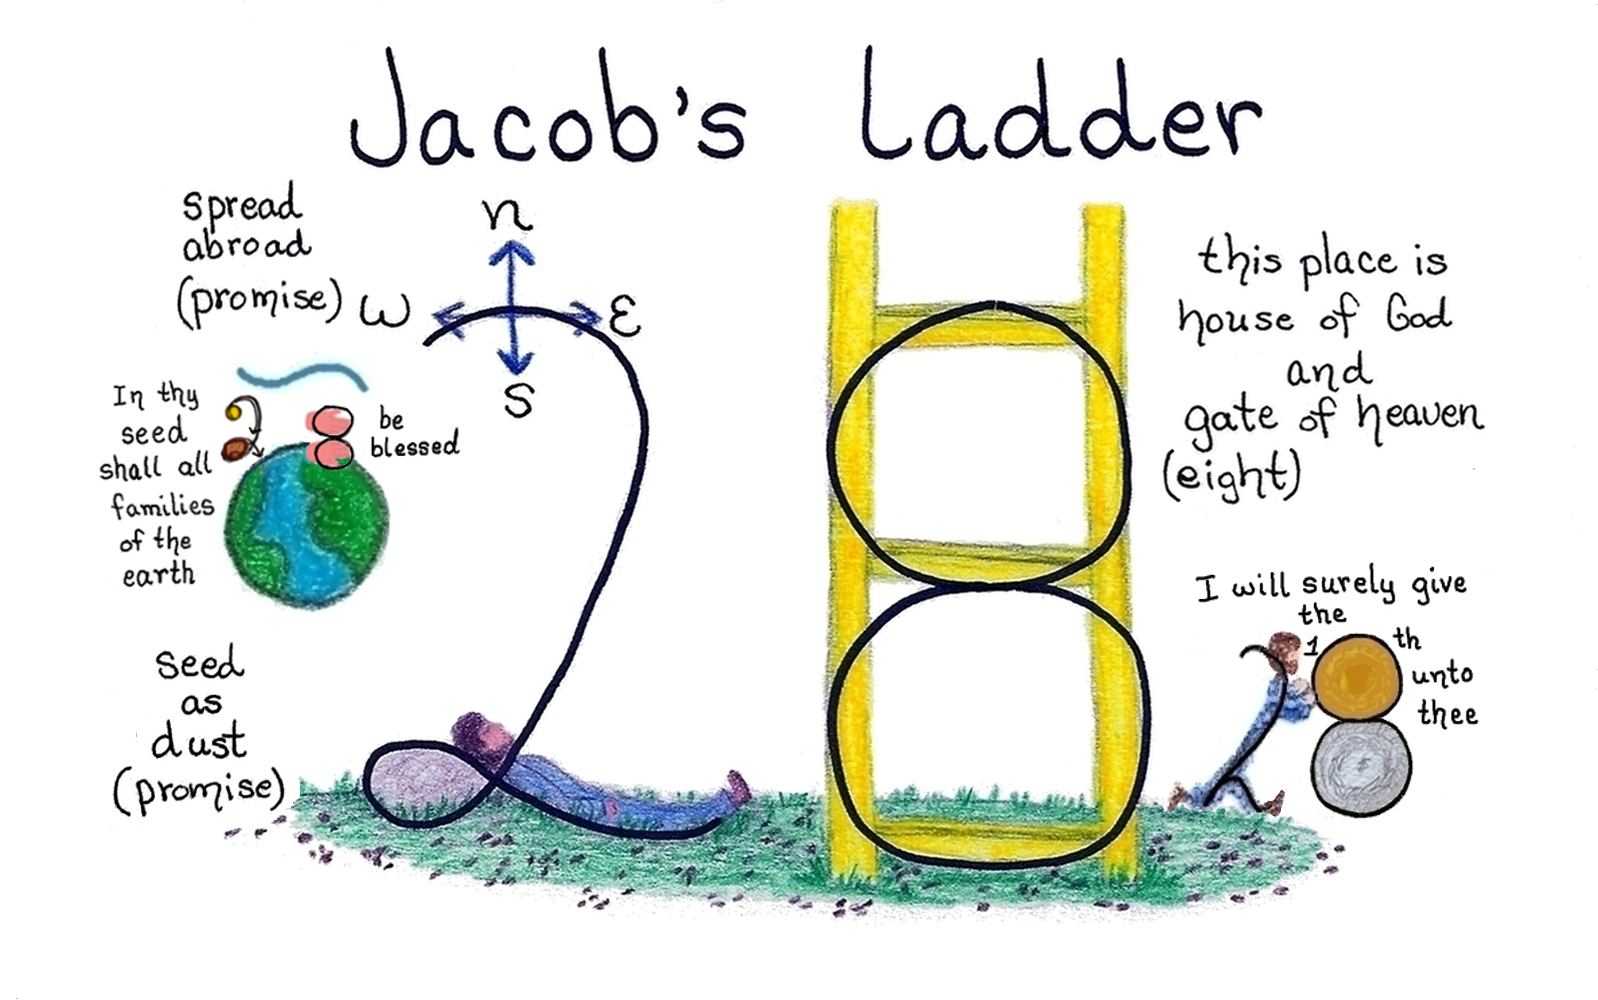 Jacob's Ladder
spread
abroad
(promise)
n
W
E
S
In thy
seed
shall all
families
of the
earth
be
blessed
seed
as
dust
(promise)
this place is
house of God
and
gate of heaven
(eight)
I will surely give
the
1 th
unto
thee